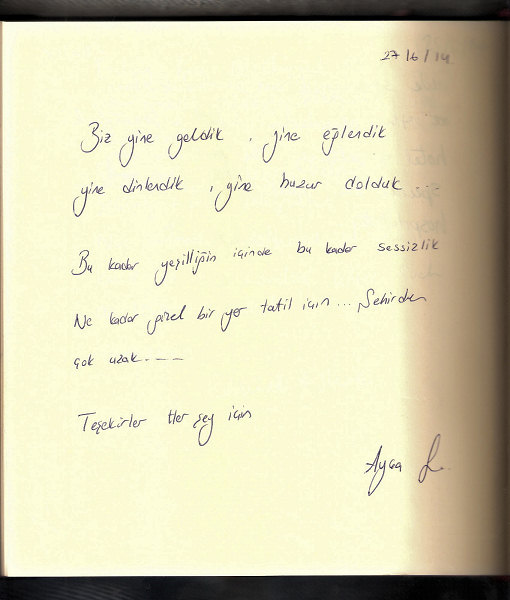 27/6/14
Biz yine geldik , yine eğlendik
yine dinlendik , yine huzur dolduk
Bu kadar yeşilliğin içinde bu kadar sessizlik
Ne kadar güzel bir yer tatil için... Şehirden
çok uzak----
Teşekürler Her şey için
Ayça